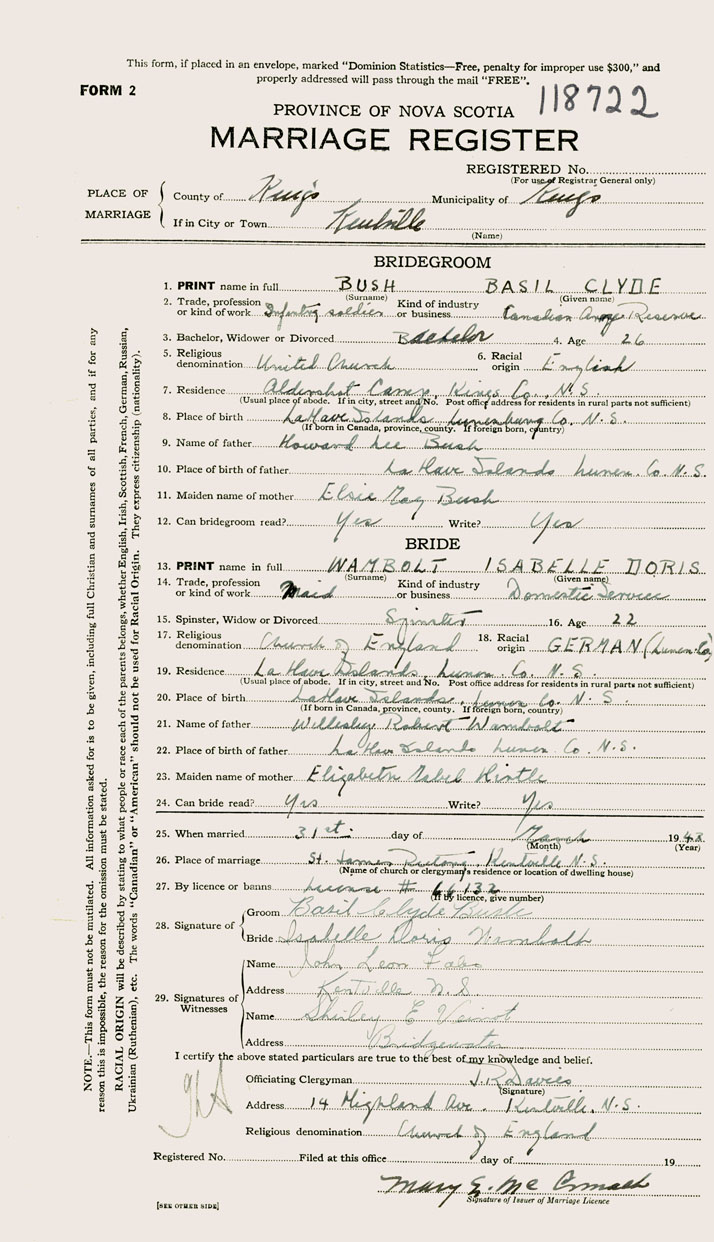 This form, if placed in an envelope, marked "Dominion Statistics—Free, penalty for improper use $300," and
properly addressed will pass through the mail "FREE".
FORM 2
118722
PROVINCE OF NOVA SCOTIA
MARRIAGE REGISTER
REGISTERED No.
(For use of Registrar General only)
PLACE OF MARRIAGE
County of Kings Municipality of Kings
If in City or Town Kentville
(Name)
BRIDEGROOM
1. PRINT name in full BUSH BASIL CLYDE
(Surname) (Given name)
2. Trade, profession or kind of work Infantry soldier Kind of industry or business Canadian Reserve
3. Bachelor, Widower or Divorced Bachelor 4. Age 26
5. Religious denomination United Church 6. Racial origin English
7. Residence Aldershot Camp, Kings Co., N.S.
(Usual place of abode. If in city, street and No. Post office address for residents in rural parts not sufficient)
8. Place of birth LaHave Islands Lunenburg Co. N.S.
(If born in Canada, province, county. If foreign born, country)
9. Name of father Howard Lee Bush
10. Place of birth of father La Have Islands Lunen. Co. N.S.
11. Maiden name of mother Elsie May Bush
12. Can bridegroom read? Yes Write? Yes
BRIDE
13. PRINT name in full WAMBOLT ISABELLE DORIS
(Surname) (Given name)
14. Trade, profession or kind of work Maid Kind of industry or business Domestic Service
15. Spinster, Widow or Divorced Spinster 16. Age 22
17. Religious denomination Church of England 18. Racial origin GERMAN (Lunen. Co)
19. Residence La Have Islands, Lunen. Co. N.S.
(Usual place of abode. If in city, street and No. Post office address for residents in rural parts not sufficient)
20. Place of birth LaHave Islands, Lunen Co. N.S.
(If born in Canada, province, county. If foreign born, country)
21. Name of father Wellesley Robert Wambolt
22. Place of birth of father La Have Islands Lunen. Co. N.S.
23. Maiden name of mother Elizabeth Mabel Hirtle
24. Can bride read? Yes Write? Yes
25. When married 31st day of March 1943
(Month) (Year)
26. Place of marriage St. James Rectory, Kentville N.S.
(Name of church or clergyman's residence or location of dwelling house)
27. By licence or banns License # 66132
(If by licence, give number)
28. Signature of Groom Basil Clyde Bush
Bride Isabelle Doris Wambolt
29. Signatures of Witnesses
Name John Leon
Address Kentville N.S
Name Shirley E Veinot
Address Bridgewater
I certify the above stated particulars are true to the best of my knowledge and belief.
Officiating Clergyman Davies
(Signature)
Address 14 Highland Ave. Kentville, N.S.
Religious denomination Church of England
Registered No. Filed at this office day of 19
Mary E. McCormack
Signature of Issuer of Marriage Licence
[SEE OTHER SIDE]
NOTE.—This form must not be mutilated. All information asked for is to be given, including full Christian and surnames of all parties, and if for any
reason this is impossible, the reason for the omission must be stated.
RACIAL ORIGIN will be described by stating to what people or race each of the parents belongs, whether English, Irish, Scottish, French, German, Russian,
Ukrainian (Ruthenian), etc. The words "Canadian" or "American" should not be used for Racial Origin. They express citizenship (nationality).